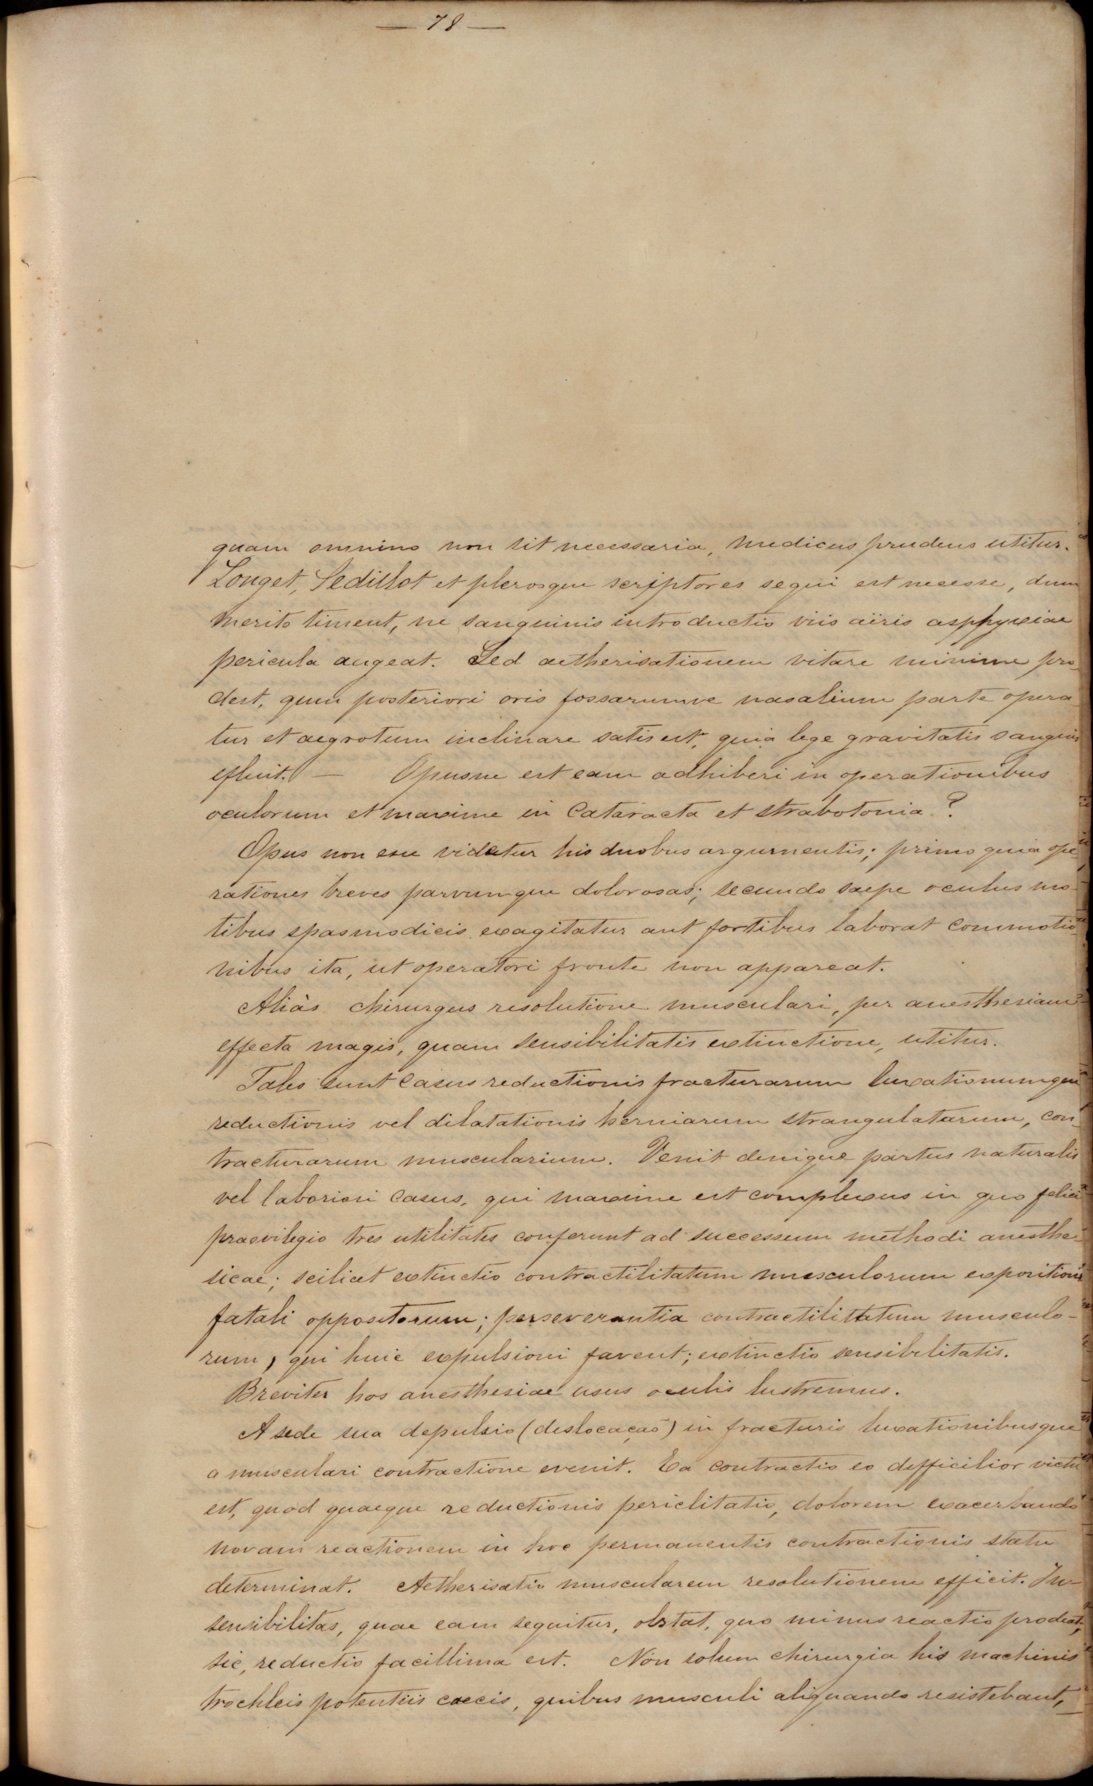 — 78 —
quam omnino non sit necessaria, medicus prudens utitur.
Longet, Sedillot et plerosque scriptores sequi est necesse, dum
merito timent, ne sanguinis introductio viis aëris asphyxiae
pericula augeat. Sed aetherisationem vitare minime pro-
dest, quum posteriori oris fossarumve nasalium parte opera
tur et aegrotum inclinare satis est, quia lege gravitatis sanguis
efluit. — Opusne est eam adhiberi in operationibus
oculorum et maxime in Cataracta et strabotonia?
Opus non esse videtur his duobus argumentis; primo quia ope
rationes breves parvumque dolorosas; secundo saepe oculus mo-
tibus spasmodicis exagitatur aut fortibus laborat commotio-
nibus ita, ut operatori fronte non appareat.
Aliàs chirurgus resolutione musculari, per anesthesiam
effecta magis, quam sensibilitatis extinctione, utitur.
Tales sunt casus reductionis fracturarum luxationumque
reductionis vel dilatationis herniarum strangulatarum, con-
tracturarum muscularium. Venit denique partus naturalis
vel laboriosi casus, qui maxime est complexus in quo felici
praevilegio tres utilitates conferunt ad successum methodi anesthe-
sicae; scilicet extinctio contractilitatum musculorum expositionis
fatali oppositorum; perseverantia contractilitatum musculo-
rum, qui huic expulsioni favent; extinctio sensibilitatis.
Breviter hos anesthesiae usus oculis lustremus.
A sede sua depulsio (deslocação) in fracturis luxationibusque
a musculari contractione evenit. Ea contractio eo defficilior victu
est, quod quaeque reductionis periclitatio, dolorem exacerbando
novam reactionem in hoc permanentis contractionis statu
determinat. Aetherisatio muscularem resolutionem efficit. In-
sensibilitas, quae eam sequitur, obstat, quo minus reactio prodeat,
sic, reductio facillima est. Non solum chirurgia his machinis
trochleis potentiis caecis, quibus musculi aliquando resistebant,